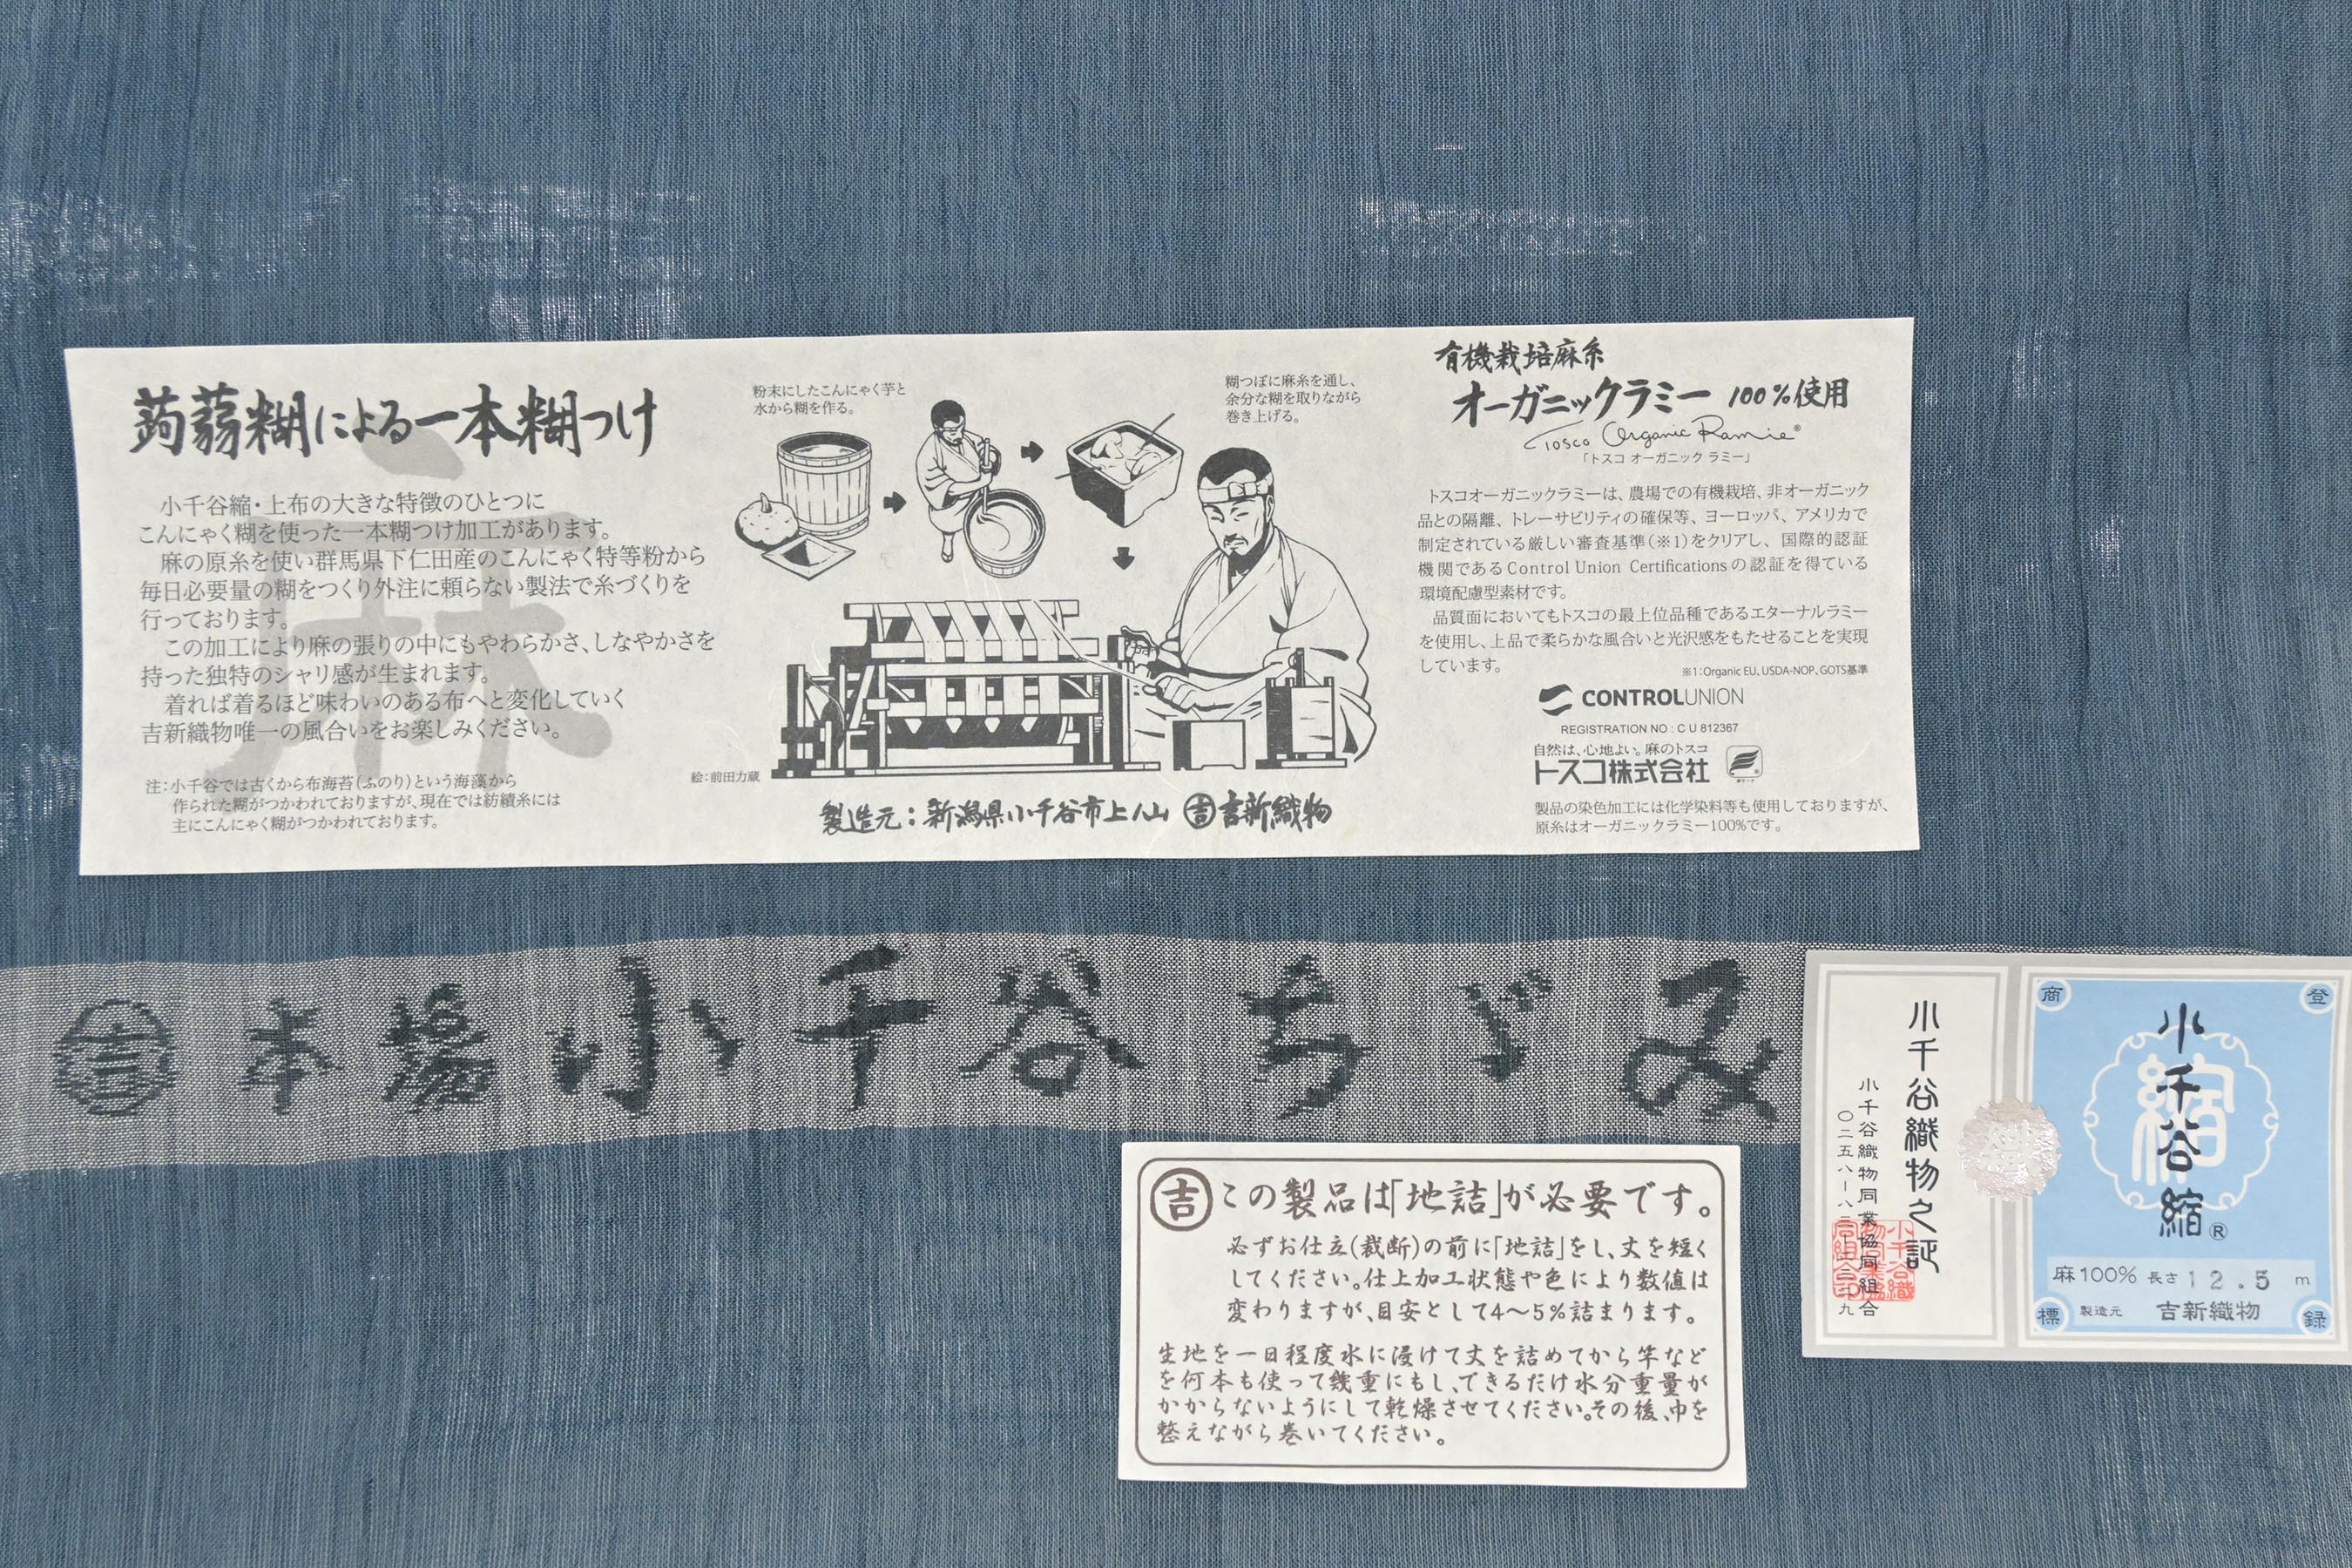 蒟蒻糊による一本糊つけ
小千谷縮・上布の大きな特徴のひとつに
こんにゃく糊を使った一本糊つけ加工があります。
麻の原糸を使い群馬県下仁田産のこんにゃく特等粉から
毎日必要量の糊をつくり外注に頼らない製法で糸づくりを
行っております。
この加工により麻の張りの中にもやわらかさ、しなやかさを
持った独特のシャリ感が生まれます。
着れば着るほど味わいのある布へと変化していく
吉新織物唯一の風合いをお楽しみください。
麻
注：小千谷では古くから布海苔（ふのり）という海藻から
作られた糊がつかわれておりますが、現在では紡績糸には
主にこんにゃく糊がつかわれております。
粉末にしたこんにゃく芋と
水から糊を作る。
糊つぼに麻糸を通し、
余分な糊を取りながら
巻き上げる。
絵：前田力蔵
製造元：新潟県小千谷市上ノ山 吉 吉新織物
有機栽培麻糸
オーガニックラミー 100%使用
Tosco Organic Ramie®
「トスコ オーガニック ラミー」
トスコオーガニックラミーは、農場での有機栽培、非オーガニック
品との隔離、トレーサビリティの確保等、ヨーロッパ、アメリカで
制定されている厳しい審査基準(※1)をクリアし、国際的認証
機関であるControl Union Certificationsの認証を得ている
環境配慮型素材です。
品質面においてもトスコの最上位品種であるエターナルラミー
を使用し、上品で柔らかな風合いと光沢感をもたせることを実現
しています。
※1：Organic EU、USDA-NOP、GOTS基準
CONTROLUNION
REGISTRATION NO : C U 812367
自然は、心地よい。麻のトスコ
トスコ株式会社
製品の染色加工には化学染料等も使用しておりますが、
原糸はオーガニックラミー100%です。
吉 本場小千谷ちゞみ
吉 この製品は「地詰」が必要です。
必ずお仕立(裁断)の前に「地詰」をし、丈を短く
してください。仕上加工状態や色により数値は
変わりますが、目安として4〜5%詰まります。
生地を一日程度水に浸けて丈を詰めてから竿など
を何本も使って幾重にもし、できるだけ水分重量が
かからないようにして乾燥させてください。その後、巾を
整えながら巻いてください。
小千谷織物之証
小千谷織物同業協同組合
〇二五八-八三-二三二九
登
録
商
標
縮
小千谷縮®
麻100% 長さ12.5 m
製造元 吉新織物